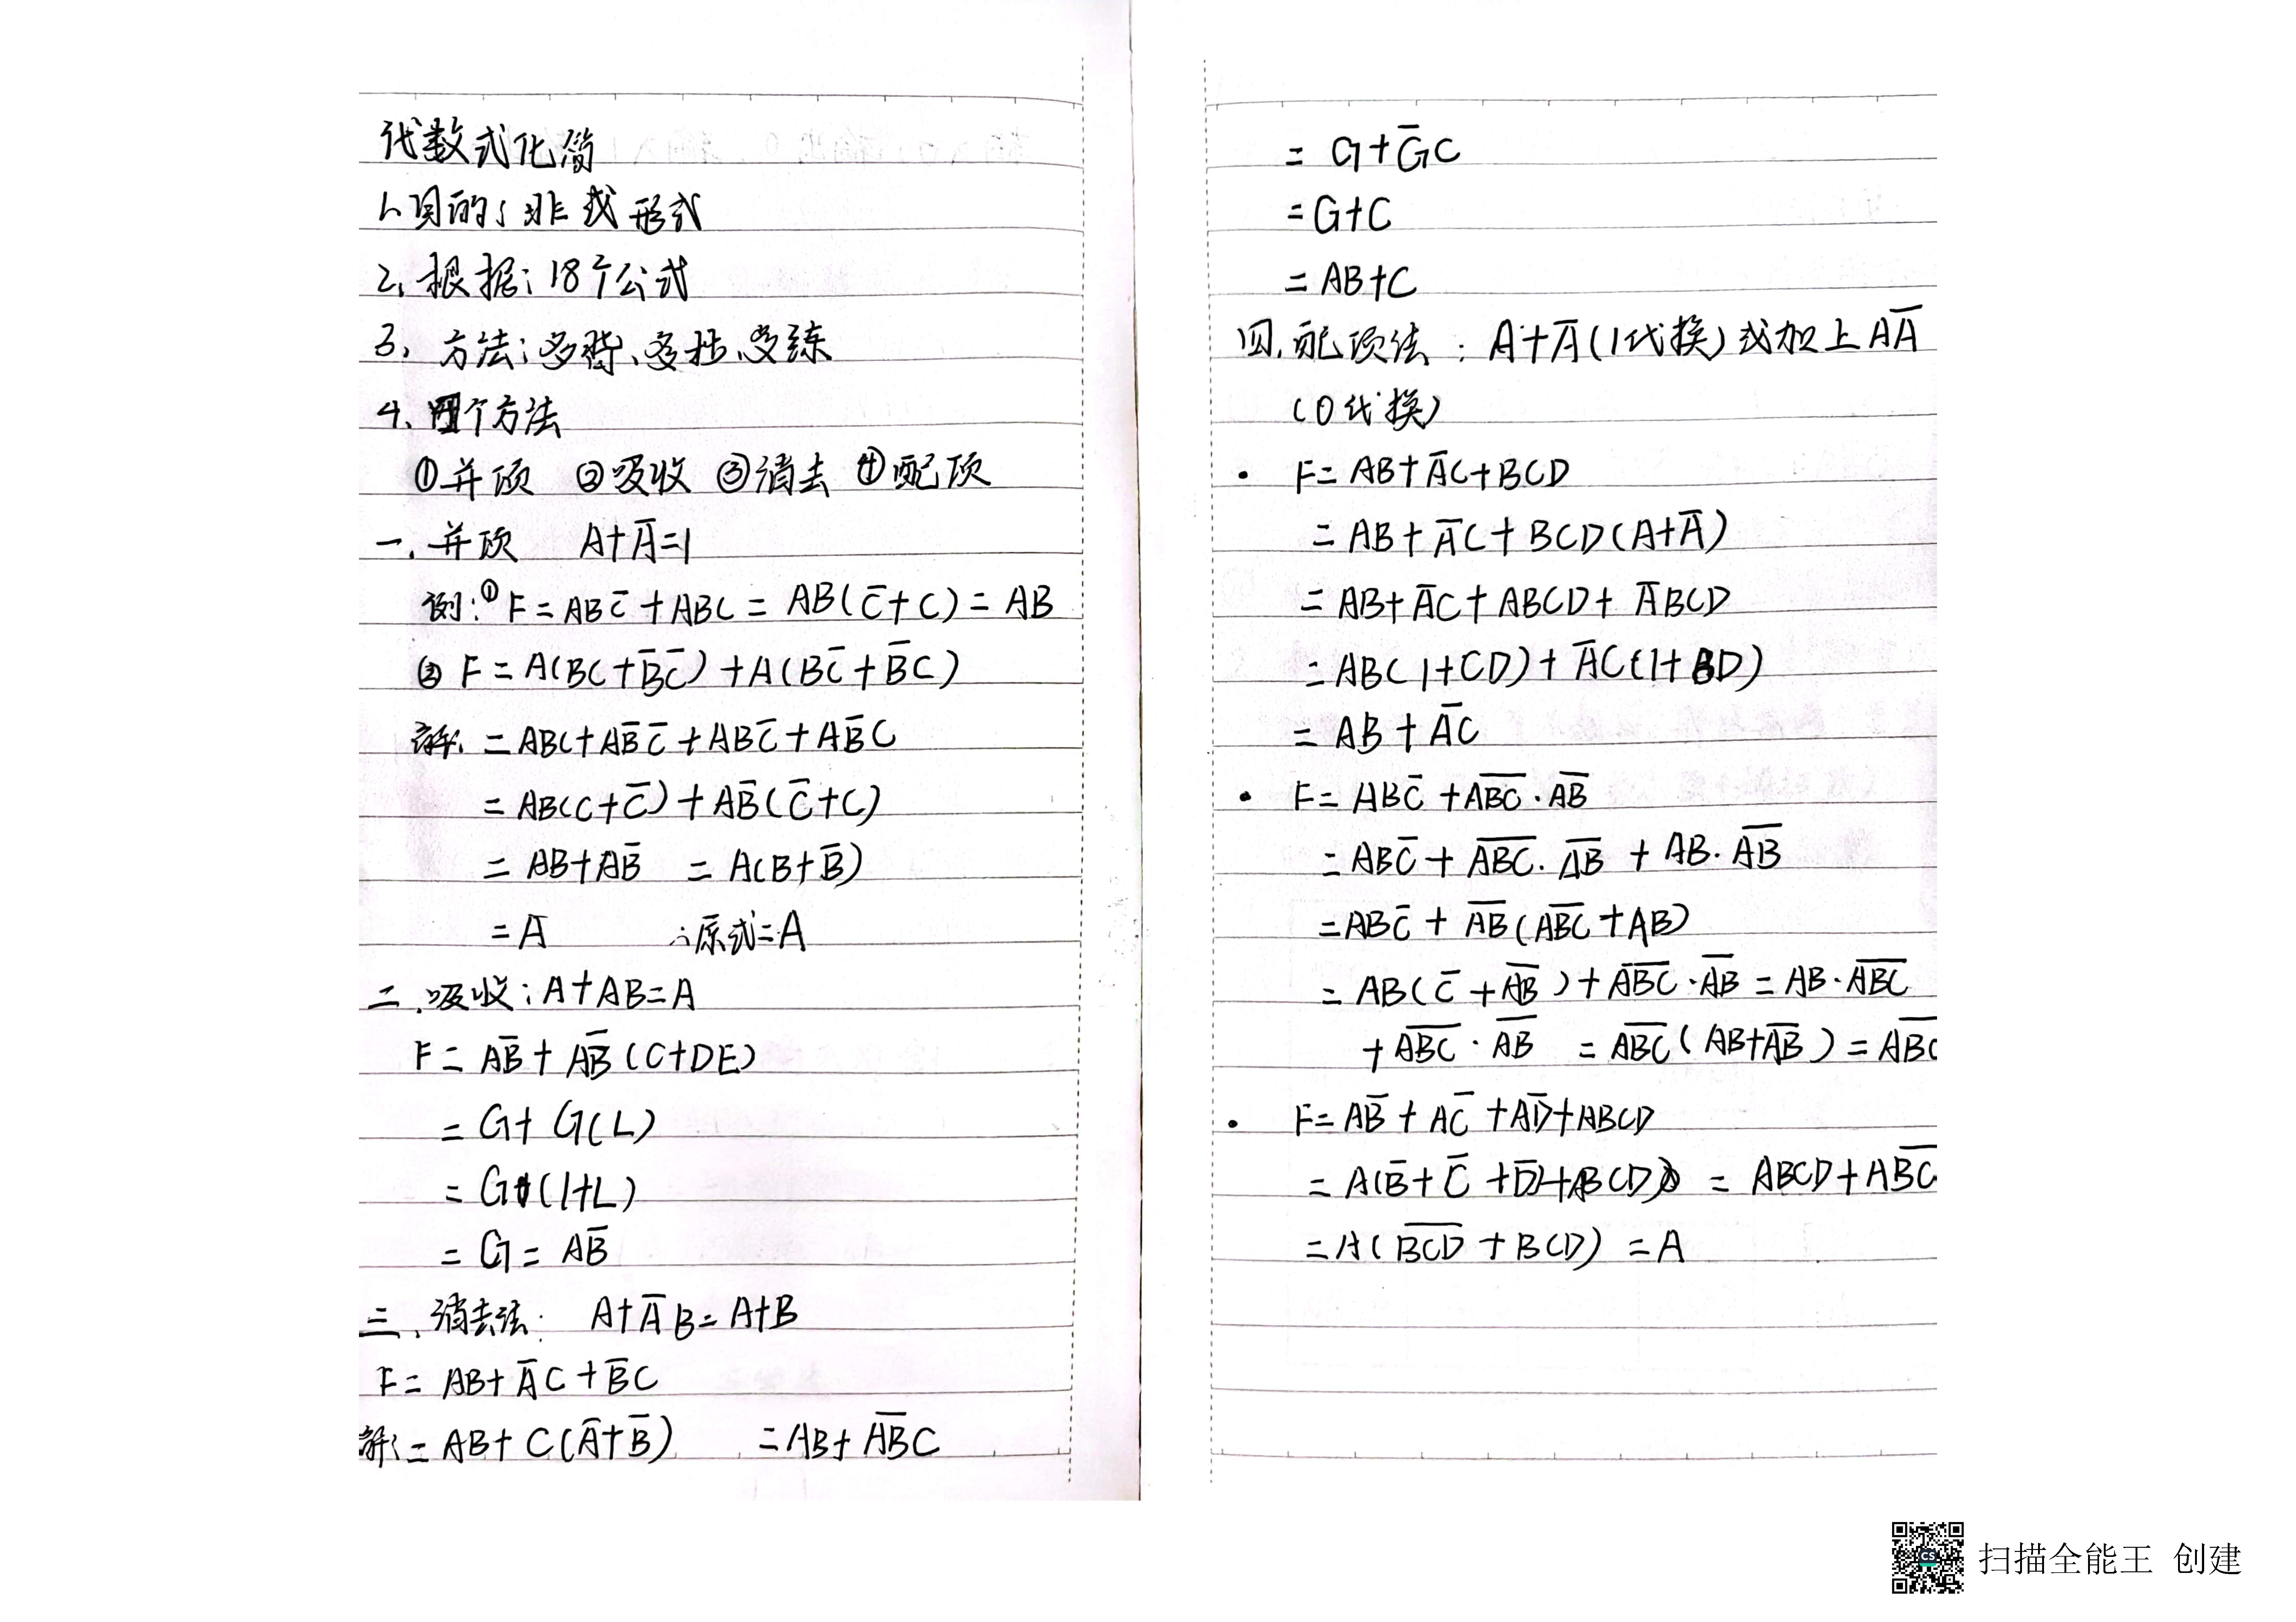 代数式化简
1、目的：非或形式
2、根据：18个公式
3、方法：多背、多抄、多练
4、四个方法
①并项 ②吸收 ③消去 ④配项
一、并项 A+A̅=1
例：① F=ABC̅+ABC=AB(C̅+C)=AB
② F=A(BC+B̅C̅)+A(BC̅+B̅C)
解：=ABC+AB̅C̅+ABC̅+AB̅C
=AB(C+C̅)+AB̅(C̅+C)
=AB+AB̅ =A(B+B̅)
=A ∴原式=A
二、吸收：A+AB=A
F=AB̅+AB̅(C+DE)
=G+G(L)
=G(1+L)
=G=AB̅
三、消去法：A+A̅B=A+B
F=AB+A̅C+B̅C
解：=AB+C(A̅+B̅) =AB+A̅B̅C
=G+G̅C
=G+C
=AB+C
四、配项法：A+A̅(1代换)或加上AA̅
(0代换)
· F=AB+A̅C+BCD
=AB+A̅C+BCD(A+A̅)
=AB+A̅C+ABCD+A̅BCD
=AB(1+CD)+A̅C(1+BD)
=AB+A̅C
· F=ABC̅+A̅B̅C̅·A̅B̅
=ABC̅+A̅B̅C̅·A̅B̅+AB·A̅B̅
=ABC̅+A̅B̅(A̅B̅C̅+AB)
=AB(C̅+A̅B̅)+A̅B̅C̅·A̅B̅=AB·A̅B̅C̅
+A̅B̅C̅·A̅B̅ =A̅B̅C̅(AB+A̅B̅)=A̅B̅C̅
· F=AB̅+AC̅+AD̅+ABCD
=A(B̅+C̅+D̅)+ABCD =ABCD+AB̅C̅
=A(B̅C̅D̅+BCD)=A
扫描全能王 创建